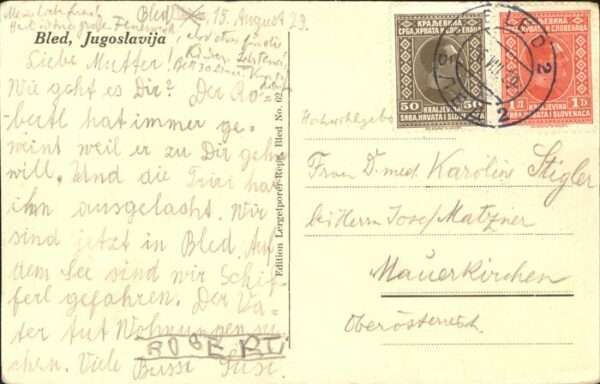 Bled 15. August 29.
Bled, Jugoslavija
Liebe Mutter!
Wie geht es Dir? Der Ro-
bertl hat immer ge-
weint weil er zu Dir gehn
will. Und die Susi hat
ihn ausgelacht. Wir
sind jetzt in Bled. Auf
dem See sind wir Schif-
ferl gefahren. Der Va-
ter tut Wohnungen su-
chen. Viele Bussi Susi.
ROBERTL
Edition Lergetporer Repr. Bled No. 62
КРАЉЕВИНА
СРБА, ХРВАТА И СЛОВЕНАЦА
50 50
KRALJEVINA
SRBA, HRVATA I SLOVENACA
КРАЉЕВИНА
СРБА, ХРВАТА И СЛОВЕНАЦА
1Д 1D
KRALJEVINA
SRBA, HRVATA I SLOVENACA
BLED 2
Hochwohlgebo
Frau Dr. med. Karoline Stigler
bei Herrn Josef Matzner
Mauerkirchen
Oberösterreich.